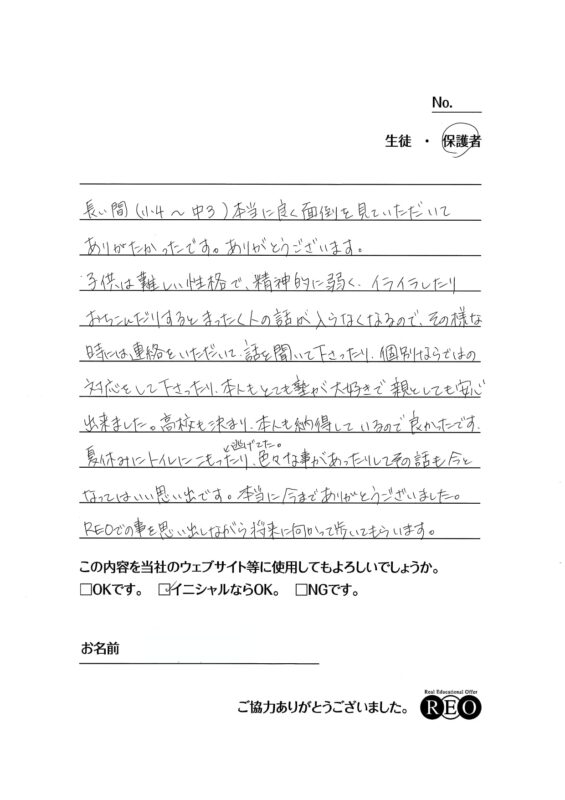 No.
生徒 ・ 保護者
長い間(小4〜中3)本当に良く面倒を見ていただいて
ありがたかったです。ありがとうございます。
子供は難しい性格で、精神的に弱く、イライラしたり
おちこんだりするとまったく人の話が入らなくなるので、その様な
時には連絡をいただいて、話を聞いて下さったり、個別ならではの
対応をして下さったり、本人もとても塾が大好きで親としても安心
出来ました。高校も決まり、本人も納得しているので良かったです。
夏休みにトイレにこもったり、色々な事があったりしてその話も今と
と逃げてた。
なってはいい思い出です。本当に今までありがとうございました。
REOでの事を思い出しながら将来に向かって歩いてもらいます。
この内容を当社のウェブサイト等に使用してもよろしいでしょうか。
□OKです。 ☑イニシャルならOK。 □NGです。
お名前
Real Educational Offer
ご協力ありがとうございました。 REO